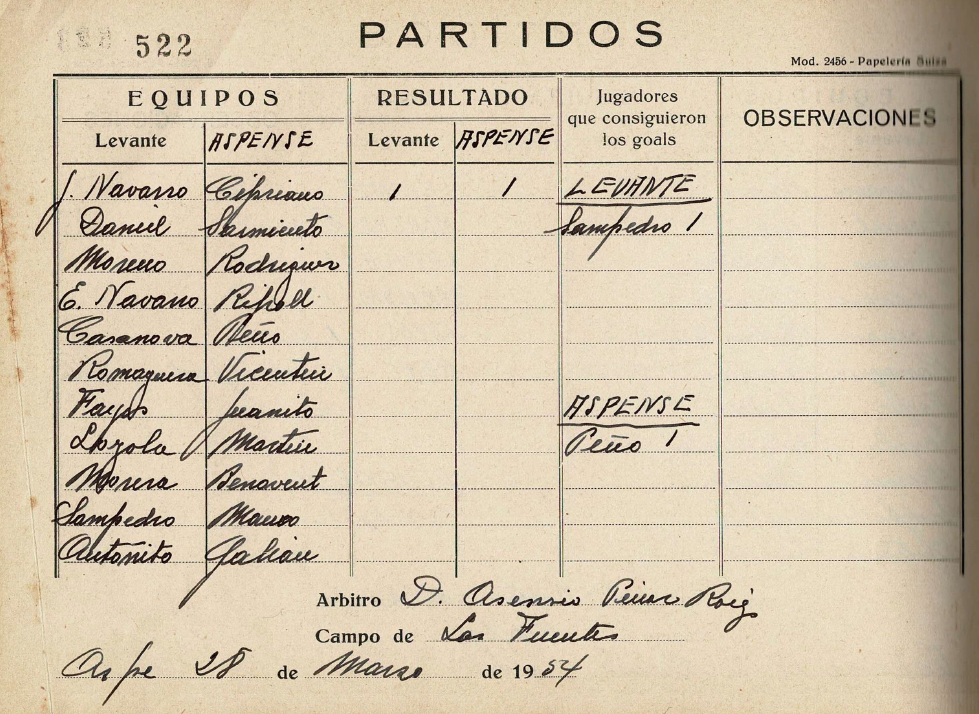 522 PARTIDOS
Mod. 2456 - Papelería Suiza
EQUIPOS RESULTADO Jugadores que consiguieron los goals OBSERVACIONES
Levante ASPENSE Levante ASPENSE
J. Navarro Cipriano 1 1 LEVANTE
Daniel Sarmiento Sampedro 1
Moreno Rodriguez
E. Navarro Ripoll
Casanova Peño
Romaguera Vicentin
Fayos Juanito ASPENSE
Loyola Martin Peño 1
Morera Benavent
Sampedro Manso
Antoñito Galian
Arbitro D. Asensio Roig
Campo de Las Fuentes
Aspe 28 de Marzo de 1954